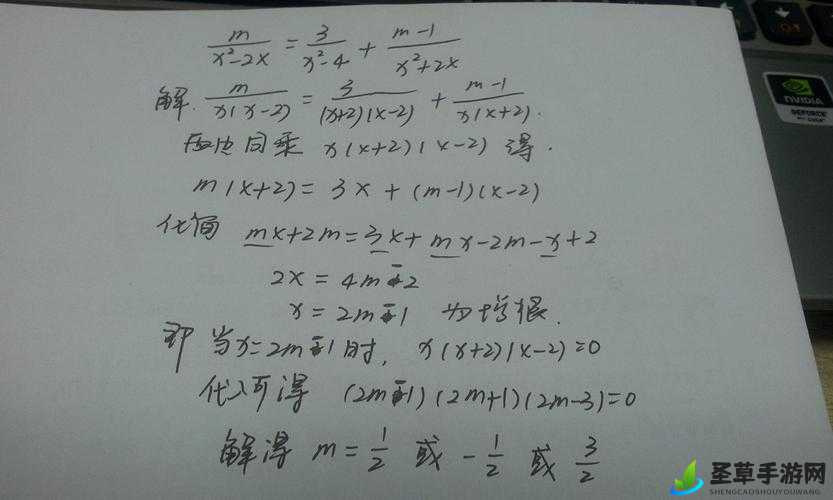 m/(x²-2x) = 3/(x²-4) + (m-1)/(x²+2x)
解. m/(x(x-2)) = 3/((x+2)(x-2)) + (m-1)/(x(x+2)).
两边同乘 x(x+2)(x-2) 得.
m(x+2) = 3x + (m-1)(x-2)
化简 mx+2m=3x+mx-2m-x+2
2x = 4m-2
x = 2m-1 为增根.
即 当x=2m-1时, x(x+2)(x-2)=0
代入可得 (2m-1)(2m+1)(2m-3)=0
解得 m=1/2 或 -1/2 或 3/2
NVIDIA
GEFORCE
圣草手游网
SHENGCAOSHOUYOUWANG